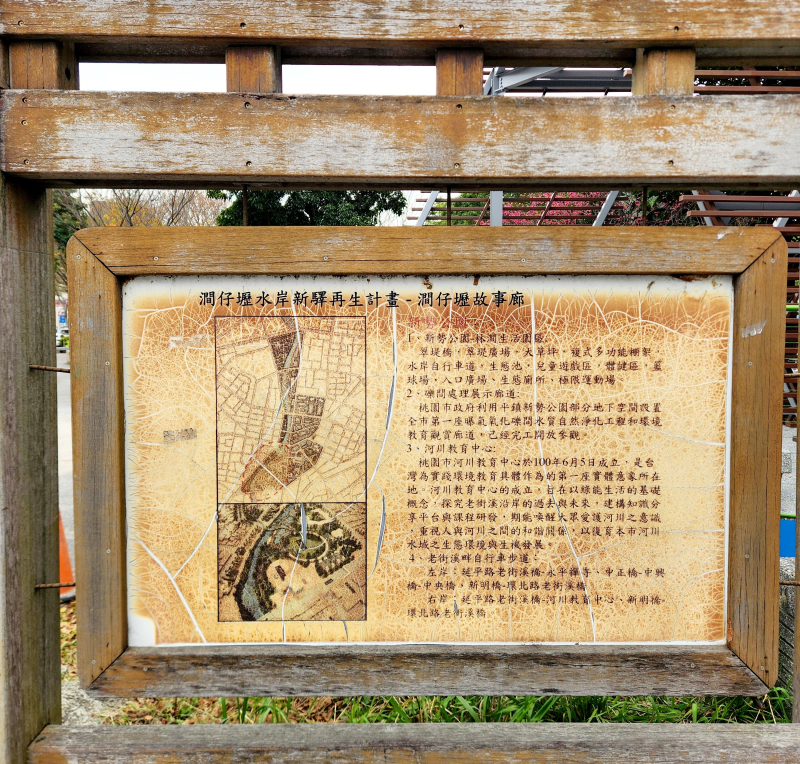 澗仔壢水岸新驛再生計畫-澗仔壢故事廊
1、新勢公園-林澗生活園區:
翠堤橋，翠堤廣場，大草坪，複式多功能棚架
水岸自行車道，生態池，兒童遊戲區，體健區，籃
球場，入口廣場，生態廁所、極限運動場。
2、礫間處理展示廊道:
桃園市政府利用平鎮新勢公園部分地下空間設置
全市第一座曝氣氧化礫間水質自然淨化工程和環境
教育觀賞廊道，已經完工開放參觀。
3、河川教育中心:
桃園市河川教育中心於100年6月5日成立，是台
灣為實踐環境教育具體作為的第一座實體意象所在
地。河川教育中心的成立，旨在以綠能生活的基礎
概念，探究老街溪沿岸的過去與未來，建構知識分
享平台與課程研發，期能喚醒大眾愛護河川之意識
，重視人與河川之間的和諧關係，以復育本市河川
水域之生態環境與生機發展。
4、老街溪畔自行車步道:
左岸:延平路老街溪橋-永平禪寺、中正橋-中興
橋-中央橋，新明橋-環北路老街溪橋
右岸:延平路老街溪橋-河川教育中心、新明橋-
環北路老街溪橋